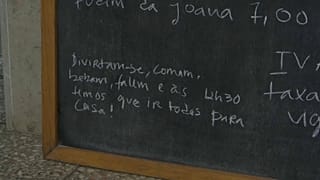 da Joana 7,00
Divirtam-se, comam,
bebam, falem e às 4h30
temos que ir todos para
casa!
IV
taxa